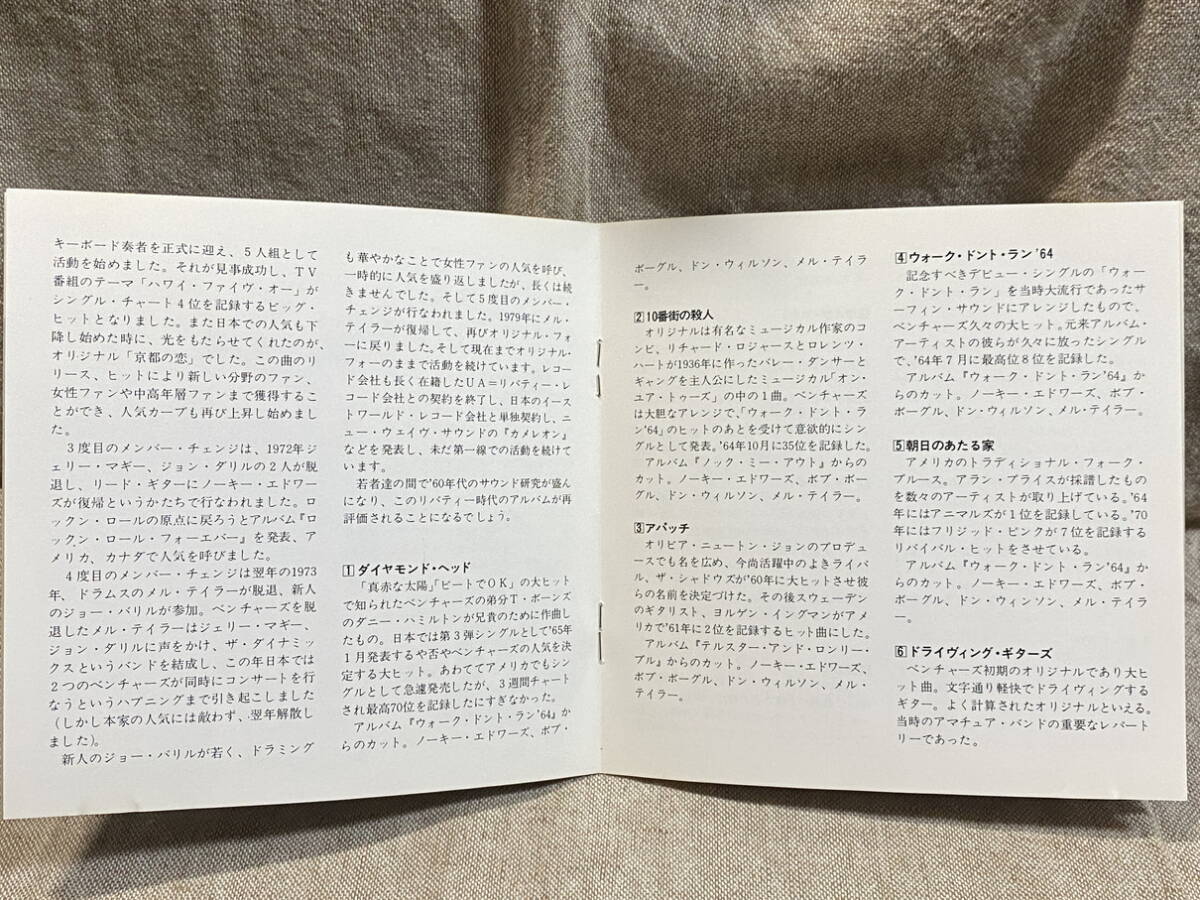 キーボード奏者を正式に迎え、5人組として
活動を始めました。それが見事成功し、TV
番組のテーマ「ハワイ・ファイヴ・オー」が
シングル・チャート4位を記録するビッグ・
ヒットとなりました。また日本での人気も下
降し始めた時に、光をもたらせてくれたのが、
オリジナル「京都の恋」でした。この曲のリ
リース、ヒットにより新しい分野のファン、
女性ファンや中高年層ファンまで獲得するこ
とができ、人気カーブも再び上昇し始めまし
た。
3度目のメンバー・チェンジは、1972年ジ
ェリー・マギー、ジョン・ダリルの2人が脱
退し、リード・ギターにノーキー・エドワー
ズが復帰というかたちで行なわれました。ロ
ックン・ロールの原点に戻ろうとアルバム『ロ
ックン・ロール・フォーエバー』を発表、ア
メリカ、カナダで人気を呼びました。
4度目のメンバー・チェンジは翌年の1973
年、ドラムスのメル・テイラーが脱退、新人
のジョー・バリルが参加。ベンチャーズを脱
退したメル・テイラーはジェリー・マギー、
ジョン・ダリルに声をかけ、ザ・ダイナミッ
クスというバンドを結成し、この年日本では
2つのベンチャーズが同時にコンサートを行
なうというハプニングまで引き起こしました
(しかし本家の人気には敵わず、翌年解散し
ました)。
新人のジョー・バリルが若く、ドラミング
も華やかなことで女性ファンの人気を呼び、
一時的に人気を盛り返しましたが、長くは続
きませんでした。そして5度目のメンバー・
チェンジが行なわれました。1979年にメル・
テイラーが復帰して、再びオリジナル・フォ
ーに戻りました。そして現在までオリジナル・
フォーのままで活動を続けています。レコー
ド会社も長く在籍したUA=リバティー・レ
コード会社との契約を終了し、日本のイース
トワールド・レコード会社と単独契約し、ニ
ュー・ウェイヴ・サウンドの『カメレオン』
などを発表し、未だ第一線での活動を続けて
います。
若者達の間で'60年代のサウンド研究が盛ん
になり、このリバティー時代のアルバムが再
評価されることになるでしょう。
1 ダイヤモンド・ヘッド
「真赤な太陽」「ビートでOK」の大ヒット
で知られたベンチャーズの弟分T・ボーンズ
のダニー・ハミルトンが兄貴のために作曲し
たもの。日本では第3弾シングルとして'65年
1月発表するや否やベンチャーズの人気を決
定する大ヒット。あわててアメリカでもシン
グルとして急速発売したが、3週間チャート
され最高70位を記録したにすぎなかった。
アルバム『ウォーク・ドント・ラン'64』か
らのカット。ノーキー・エドワーズ、ボブ・
ボーグル、ドン・ウィルソン、メル・テイラ
ー。
2 10番街の殺人
オリジナルは有名なミュージカル作家のコ
ンビ、リチャード・ロジャースとロレンツ・
ハートが1936年に作ったバレー・ダンサーと
ギャングを主人公にしたミュージカル「オン・
ユア・トゥーズ」の中の1曲。ベンチャーズ
は大胆なアレンジで、「ウォーク・ドント・ラ
ン'64」のヒットのあとを受けて意欲的にシン
グルとして発表。'64年10月に35位を記録した。
アルバム『ノック・ミー・アウト』からの
カット。ノーキー・エドワーズ、ボブ・ボー
グル、ドン・ウィルソン、メル・テイラー。
3 アパッチ
オリビア・ニュートン・ジョンのプロデュ
ースでも名を広め、今尚活躍中のよきライバ
ル、ザ・シャドウズが'60年に大ヒットさせ彼
らの名前を決定づけた。その後スウェーデン
のギタリスト、ヨルゲン・イングマンがアメ
リカで'61年に2位を記録するヒット曲にした。
アルバム『テルスター・アンド・ロンリー・
ブル』からのカット。ノーキー・エドワーズ、
ボブ・ボーグル、ドン・ウィルソン、メル・
テイラー。
4 ウォーク・ドント・ラン'64
記念すべきデビュー・シングルの「ウォー
ク・ドント・ラン」を当時大流行であったサ
ーフィン・サウンドにアレンジしたもので、
ベンチャーズ久々の大ヒット。元来アルバム・
アーティストの彼らが久々に放ったシングル
で、'64年7月に最高位8位を記録した。
アルバム『ウォーク・ドント・ラン'64』か
らのカット。ノーキー・エドワーズ、ボブ・
ボーグル、ドン・ウィルソン、メル・テイラー。
5 朝日のあたる家
アメリカのトラディショナル・フォーク・
ブルース。アラン・プライスが採譜したもの
を数々のアーティストが取り上げている。'64
年にはアニマルズが1位を記録している。'70
年にはフリジッド・ピンクが7位を記録する
リバイバル・ヒットをさせている。
アルバム『ウォーク・ドント・ラン'64』か
らのカット。ノーキー・エドワーズ、ボブ・
ボーグル、ドン・ウィンソン、メル・テイラ
ー。
6 ドライヴィング・ギターズ
ベンチャーズ初期のオリジナルであり大ヒ
ット曲。文字通り軽快でドライヴィングする
ギター。よく計算されたオリジナルといえる。
当時のアマチュア・バンドの重要なレパート
リーであった。